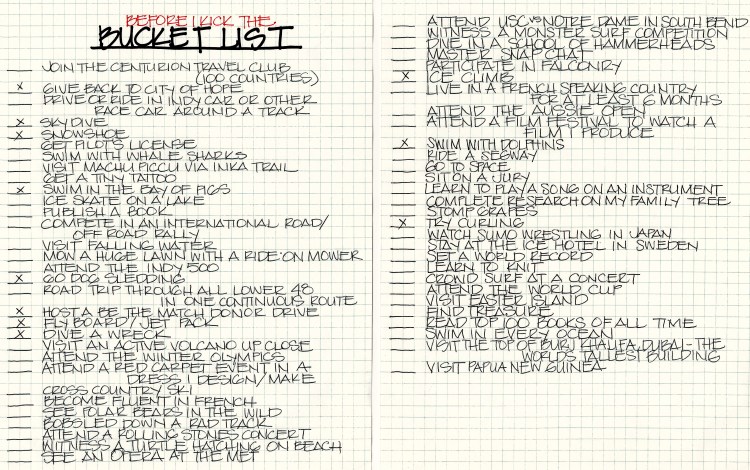 BEFORE I KICK THE
BUCKET LIST
JOIN THE CENTURION TRAVEL CLUB
(100 COUNTRIES)
X GIVE BACK TO CITY OF HOPE
DRIVE OR RIDE IN INDY CAR OR OTHER
RACE CAR AROUND A TRACK
X SKY DIVE
X SNOWSHOE
GET PILOTS LICENSE
SWIM WITH WHALE SHARKS
VISIT MACHU PICCU VIA INKA TRAIL
GET A TINY TATTOO
X SWIM IN THE BAY OF PIGS
ICE SKATE ON A LAKE
PUBLISH A BOOK
COMPETE IN AN INTERNATIONAL ROAD/
OFF ROAD RALLY
VISIT FALLING WATER
MOW A HUGE LAWN WITH A RIDE-ON MOWER
ATTEND THE INDY 500
X GO DOG SLEDDING
ROAD TRIP THROUGH ALL LOWER 48
IN ONE CONTINUOUS ROUTE
X HOST A BE THE MATCH DONOR DRIVE
X FLY BOARD/JET PACK
X DIVE A WRECK
VISIT AN ACTIVE VOLCANO UP CLOSE
ATTEND THE WINTER OLYMPICS
ATTEND A RED CARPET EVENT IN A
DRESS I DESIGN/MAKE
CROSS COUNTRY SKI
BECOME FLUENT IN FRENCH
SEE POLAR BEARS IN THE WILD
BOBSLED DOWN A RAD TRACK
ATTEND A ROLLING STONES CONCERT
WITNESS A TURTLE HATCHING ON BEACH
SEE AN OPERA AT THE MET
ATTEND USC vs NOTRE DAME IN SOUTH BEND
WITNESS A MONSTER SURF COMPETITION
DIVE IN A SCHOOL OF HAMMERHEADS
MASTER SNAP CHAT
PARTICIPATE IN FALCONRY
X ICE CLIMB
LIVE IN A FRENCH SPEAKING COUNTRY
FOR AT LEAST 6 MONTHS
ATTEND THE AUSSIE OPEN
ATTEND A FILM FESTIVAL TO WATCH A
FILM I PRODUCE
X SWIM WITH DOLPHINS
RIDE A SEGWAY
GO TO SPACE
SIT ON A JURY
LEARN TO PLAY A SONG ON AN INSTRUMENT
COMPLETE RESEARCH ON MY FAMILY TREE
STOMP GRAPES
X TRY CURLING
WATCH SUMO WRESTLING IN JAPAN
STAY AT THE ICE HOTEL IN SWEDEN
SET A WORLD RECORD
LEARN TO KNIT
CROWD SURF AT A CONCERT
ATTEND THE WORLD CUP
VISIT EASTER ISLAND
FIND TREASURE
READ TOP 100 BOOKS OF ALL TIME
SWIM IN EVERY OCEAN
VISIT THE TOP OF BURJ KHALIFA, DUBAI - THE
WORLDS TALLEST BUILDING
VISIT PAPUA NEW GUINEA